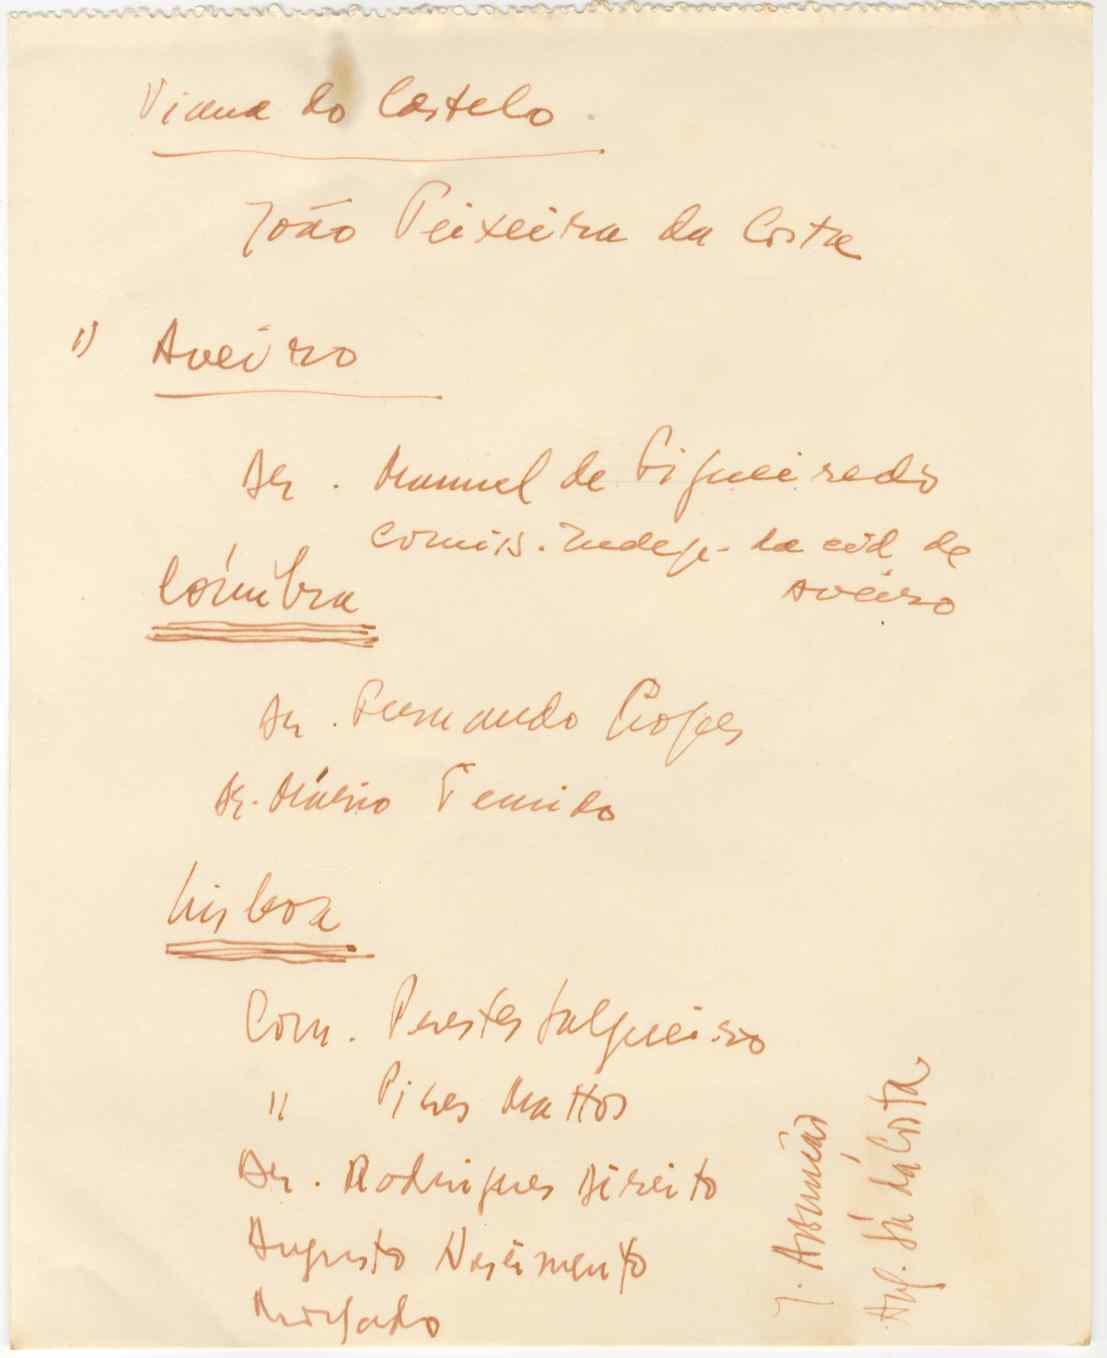 Viana do Castelo.
João Teixeira da Costa
1) Aveiro
Dr. Manuel de Figueiredo
Comis. Indep. da cid. de
Aveiro
Coimbra
Dr. Fernando Lopes
Dr. Mário Temido
Lisboa
Com. Prestes Salgueiro
" Pires Mattos
Dr. Rodrigues Direito
Augusto Nascimento
Morgado
J. Assunção
Aug. Sá da Costa